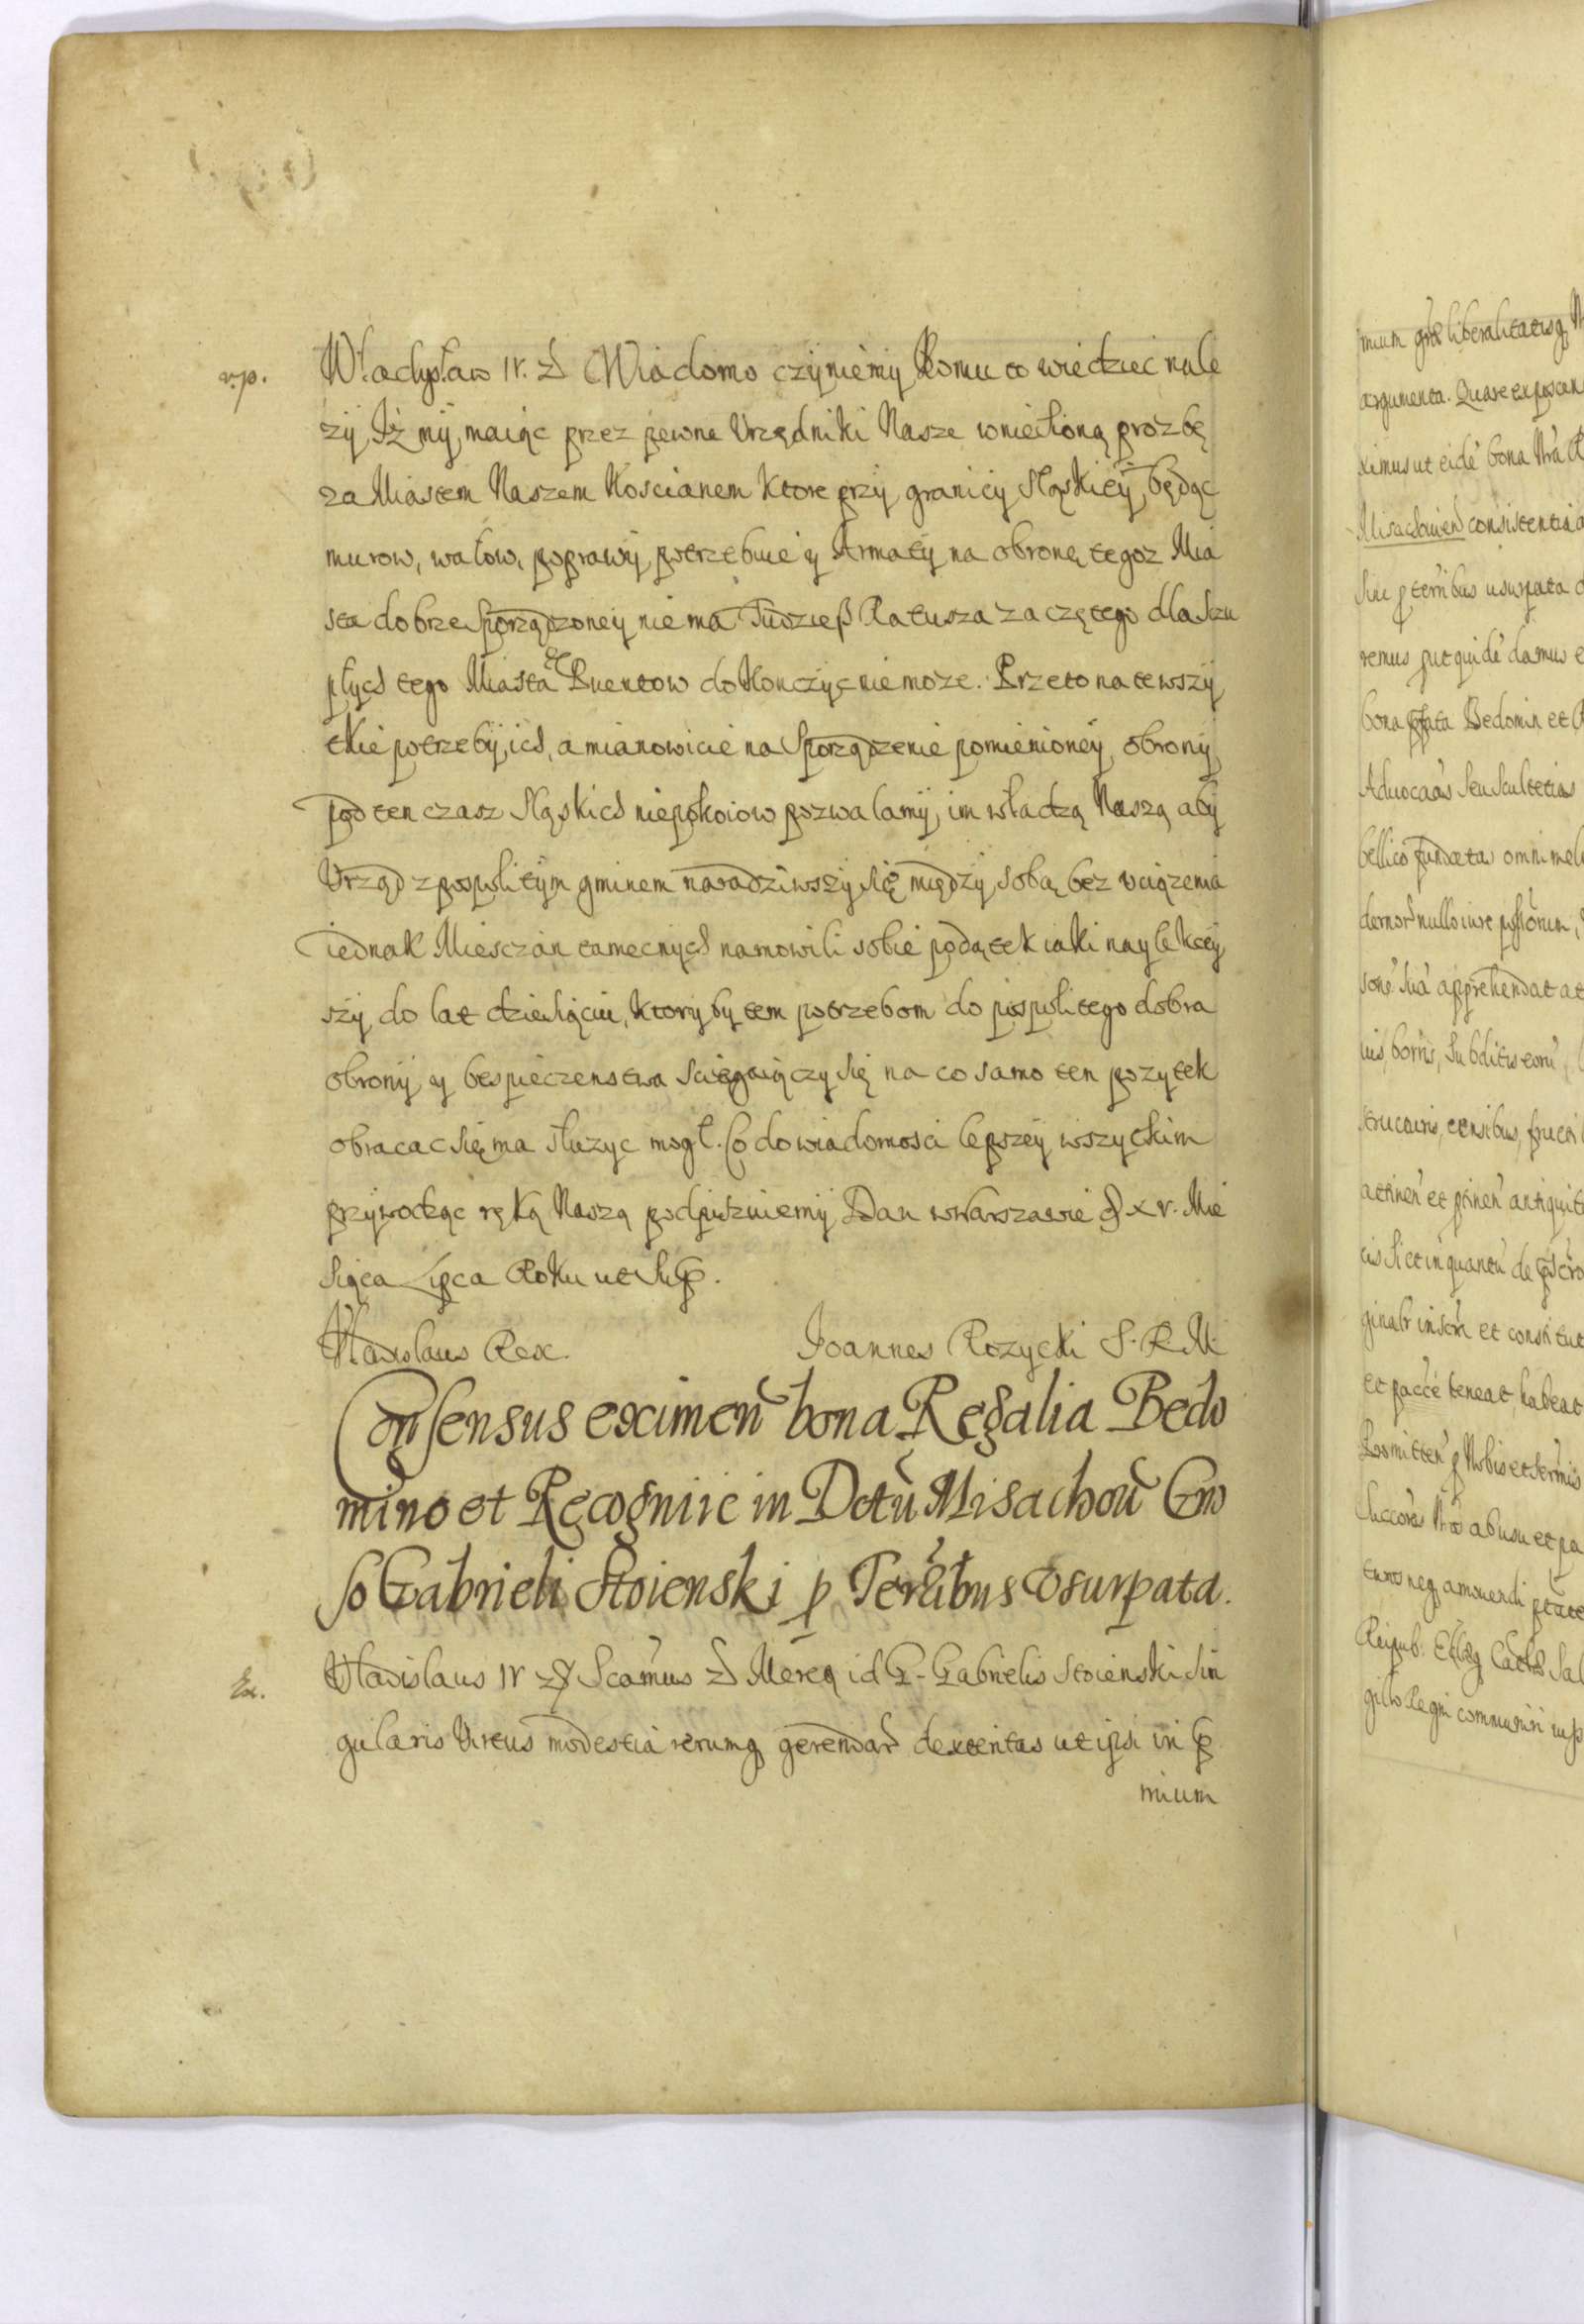 v.p.
Władysław IV. Wiadomo czyniemy komu to wiedziec nale
zy, Iż my, maiąc przez pewne Vrzędniki Nasze wniesioną prozbę
za Miastem Naszem Koscianem ktore przy granicy Sląskiey, będąc
murow, wałow, poprawy potrzebuie y Armaty na obronę tegoz Mia
sta dobrze sporządzoney nie ma Tudzież Ratusza zaczętego dla szu
płych tego Miasta Prentow dokonczyc nie moze. Przeto na te wszy
tkie potrzeby, ich, a mianowicie na sporządzenie pomienioney obrony
pod ten czasz Sląskich niepokoiow pozwalamy, im władzą Naszą aby
Vrząd z pospolitym gminem naradziwszy się między sobą bez vciązenia
iednak Miesczan tamecznych namowili sobie podatek iaki naylekcey
szy do lat dziesiąciu, ktory by tem potrzebom do pospolitego dobra
obrony y bespieczenstwa sciągaiączy się na co samo ten pozytek
obracac się ma słuzyc mogł. Co do wiadomosci lepszey wszytkim
przywodząc ręką Naszą podpiszuiemy Dan w Warszawie d xv. Mie
siąca Lipca Roku ut sup.
Vladislaus Rex. Joannes Rozycki S. R. M.
Consensus eximen bona Regalia Bedo
mino et Recognie in Dctu Misachow Gno
so Gabrieli Stoienski p Terribus Vsurpata.
Ex.
Vladislaus IV Scamus Mereq id G. Gabrielis Stoienski sin
gularis Virtus modestia rerumq gerendar dexteritas ut ipsi in p
mium
mium liberalitatisq
argumenta. Quare exposcen
ximus ut eide bona Nra
Misachovien consistentia
siue p terribus usurpata
remus put quide damus e
bona Bedomin et R
Aduocatias seu Scultetias
bellico fundatas omni meli
nullo iure
sone sua apprehendat at
bonis, subditis eoru
censibus, fructi
attinen et ptinen antiquit
cis sicut in quantu de
ginalr inscri et constitut
et pacce teneat, habeat
Promitten p Nobis et sermis
Succores abusu et pa
neq amouendi
Reipub. Ecclaeq Cathol. Sal
gillo Regni communiri